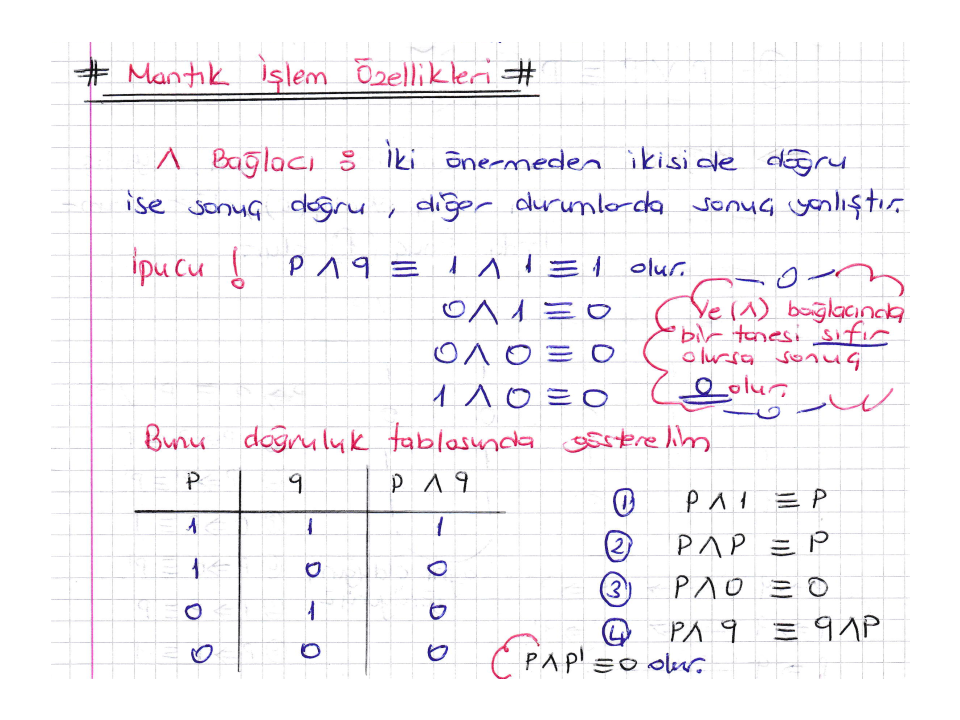 # Mantık İşlem Özellikleri #
Λ Bağlacı : İki önermeden ikiside doğru
ise sonuç doğru , diğer durumlarda sonuç yanlıştır.
İpucu ! P Λ q ≡ 1 Λ 1 ≡ 1 olur.
0 Λ 1 ≡ 0
0 Λ 0 ≡ 0
1 Λ 0 ≡ 0
Ve (Λ) bağlacında
bir tanesi sıfır
olursa sonuç
0 olur.
Bunu doğruluk tablosunda gösterelim
P q P Λ q
1 1 1
1 0 0
0 1 0
0 0 0
① P Λ 1 ≡ P
② P Λ P ≡ P
③ P Λ 0 ≡ 0
④ P Λ q ≡ q Λ P
P Λ P' ≡ 0 olur.